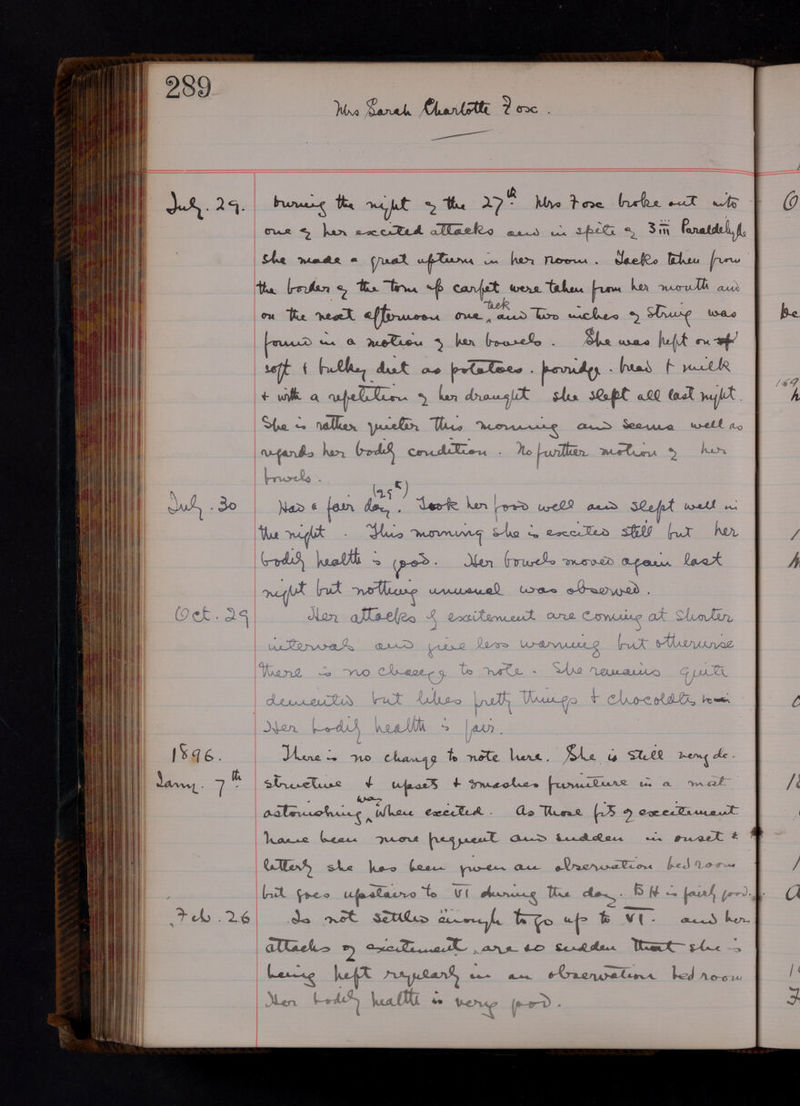 289
Mrs Sarah Charlotte Fose.
July. 29. During the night of the 27th Mrs Fose broke out into
one of her excited attacks and in spite of 3iii Paraldehyde
She made a great upturn in her room. Tacks taken from
the border of the torn up carpet were taken from her mouth and
on the next afternoon one tack, and two inches of string was
found in a motion of her bowels. She was kept on
soft & bulky diet as potatoes. porridge. bread & milk
+ with a repetition of her draught she slept all last night.
She is rather quieter this morning and seems well as
regards her bodily condition. No further motion of her
bowels.
July. 30 Had a fair day (29th). Took her food well and slept well in
the night. This morning she is excited still but her
bodily health is good. Her bowels moved again last
night but nothing unusual was observed.
Oct. 29 Her attacks of excitement are coming at shorter
intervals and give less warning but otherwise
there is no change to note. She remains quite
demented but likes pretty things & chocolates
Her bodily health is fair.
1896. There is no change to note here. She is still very de-
Jany. 7th structive & upsets & smashes furniture in a most
astonishing way, when excited. As these fits of excitement
have been more frequent and sudden in onset &
latterly she has been given an observation bedroom
but goes upstairs to VI during the day. B H is fairly good.
Feb. 26 Is not settled enough to go up to VI. and her
attacks of excitement are so sudden that she is
being kept regularly in an observation bedroom
Her bodily health is very good.